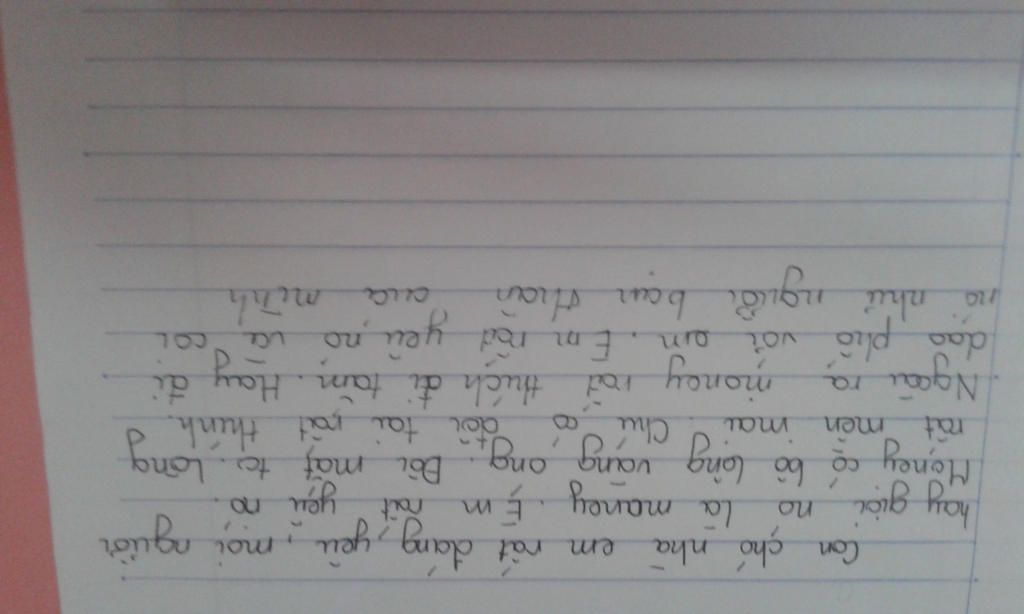 Con chó nhà em rất đáng yêu, mọi người
hay gọi nó là money. Em rất yêu nó.
Money có bộ lông vàng óng. Đôi mắt to. Lông
rất mền mại. Chú có đôi tai rất thính.
Ngoài ra money rất thích đi tắm. Hay đi
dạo phố với em. Em rất yêu nó và coi
nó như người bạn thân của mình